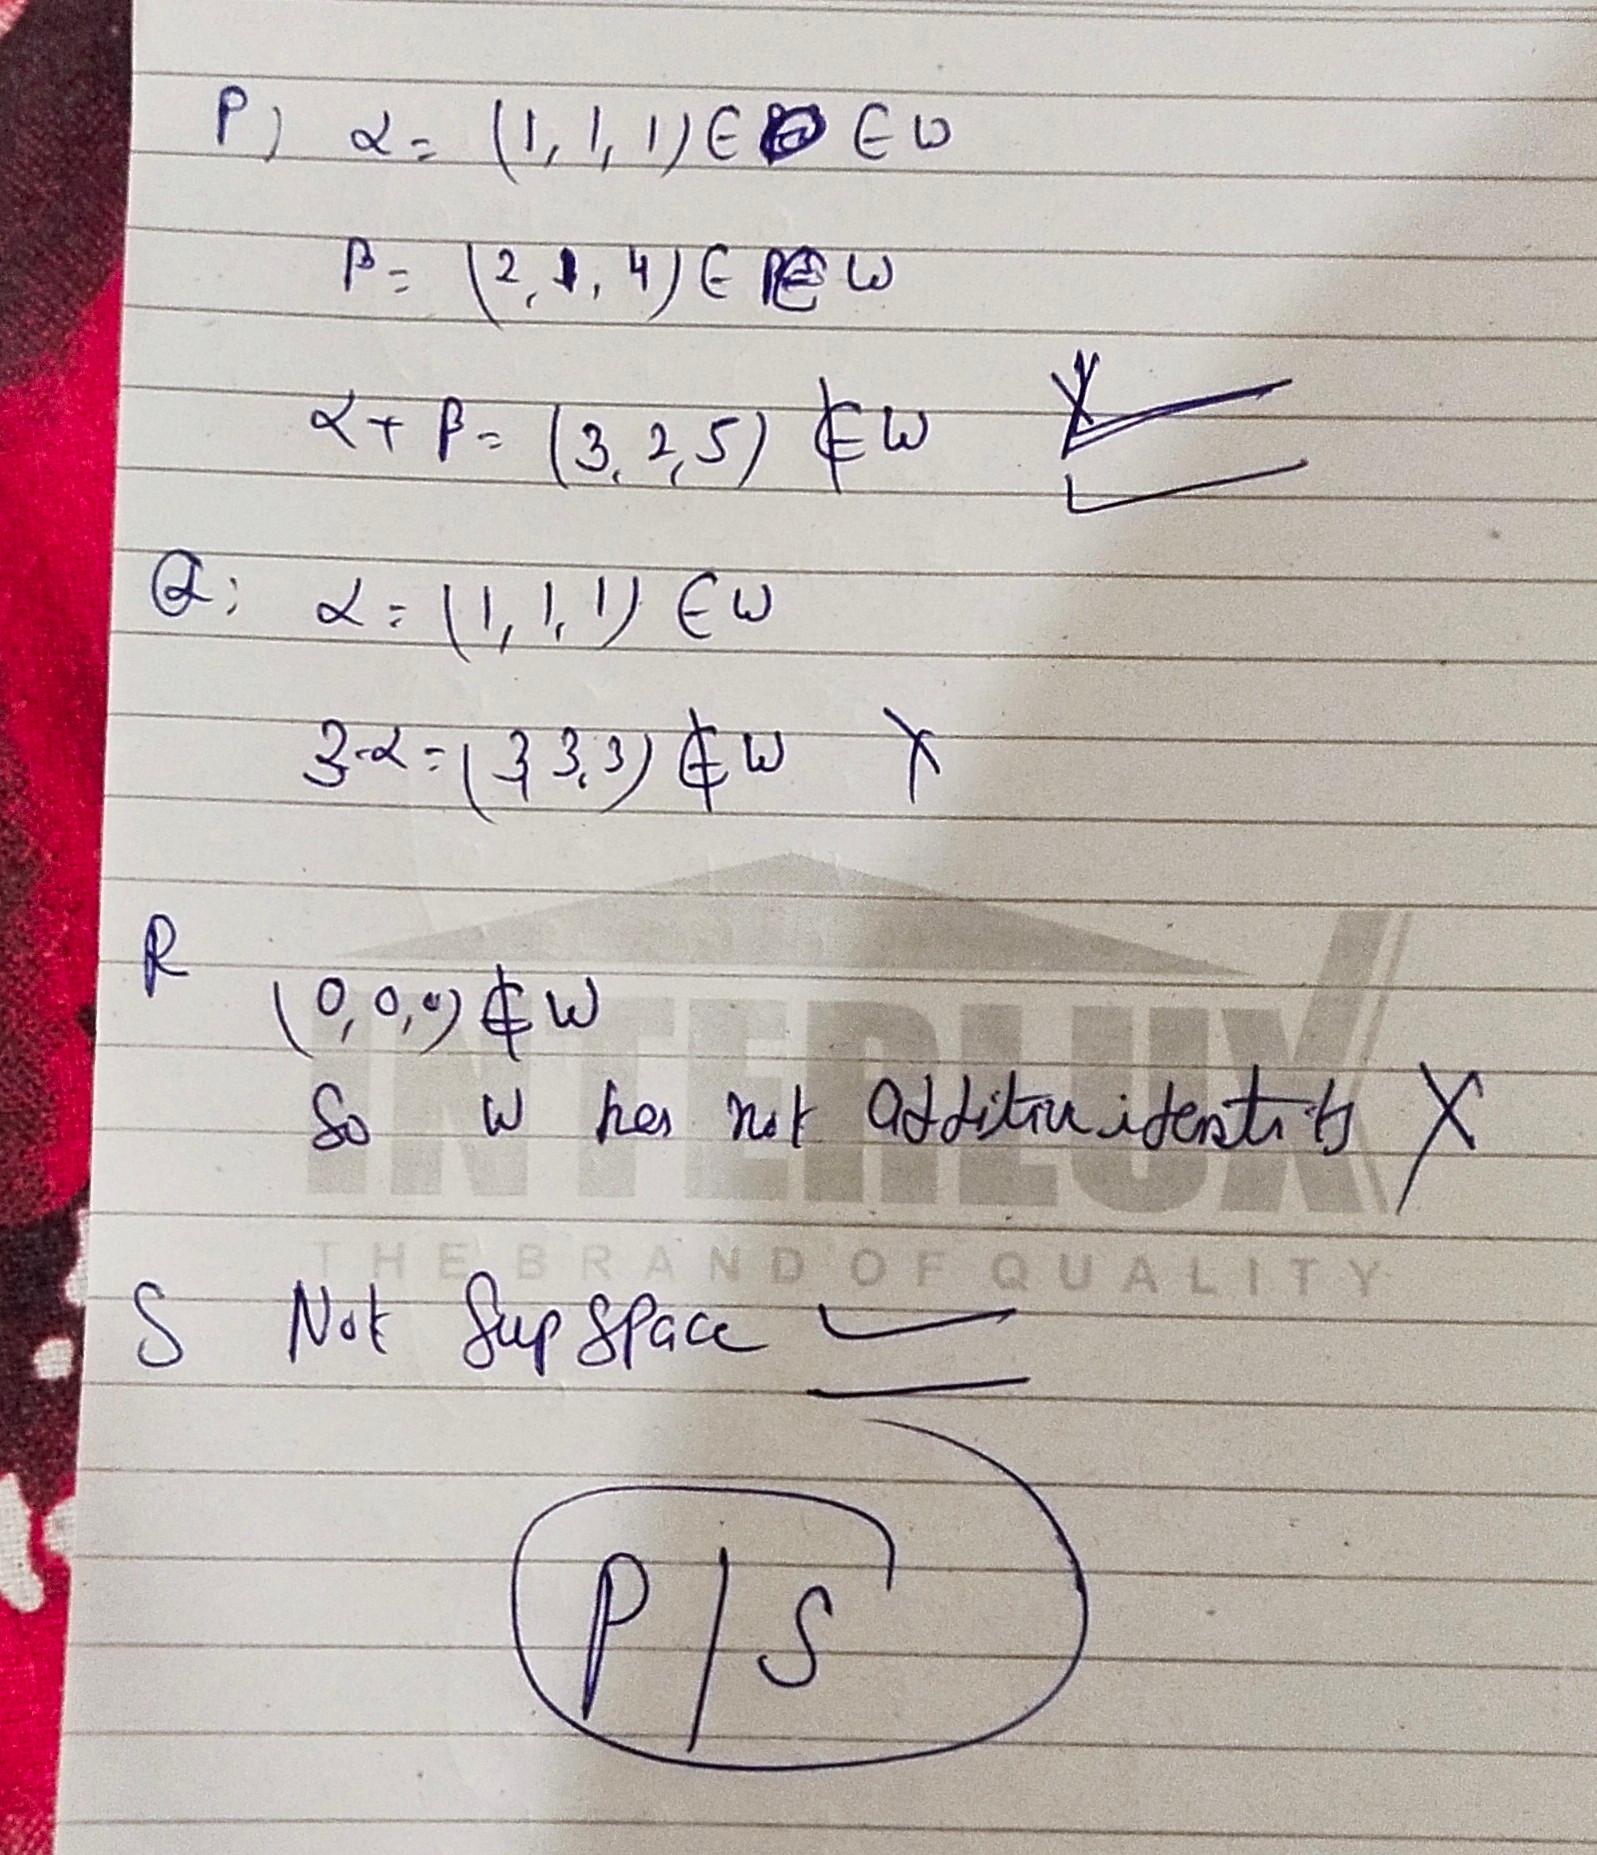 P) α = (1, 1, 1) ∈ ∈ W
β = (2, 1, 4) ∈ W
α + β = (3, 2, 5) ∉ W
Q: α = (1, 1, 1) ∈ W
3·α = (3, 3, 3) ∉ W X
R
(0, 0, 0) ∉ W
So W has not additive identity X
INTERLUX
THE BRAND OF QUALITY
S Not Supspace ✓
P | S